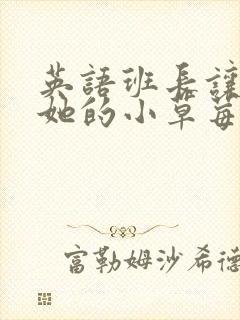 英語班長讓
她的小草莓
富勒姆沙希德